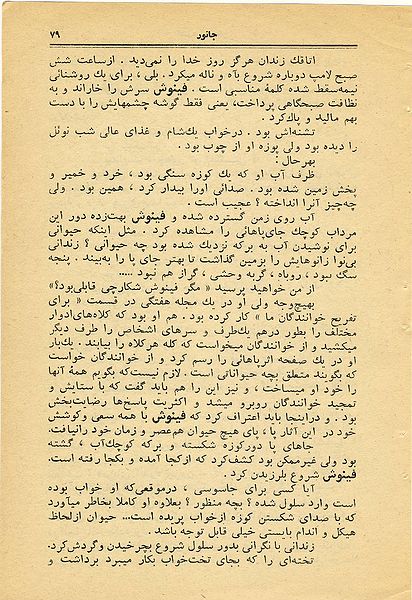 ۷۹ جانور
اتاقك زندان هرگز روز خدا را نمیدید . ازساعت شش
صبح لامپ دوباره شروع بآه و ناله میكرد . بلی ، برای یك روشنائی
نیمه‌سقط شده كلمهٔ مناسبی است . فینوش سرش را خاراند و به
نظافت صبحگاهی پرداخت، یعنی فقط گوشه چشمهایش را با دست
بهم مالید و پاك‌كرد .
تشنه‌اش بود . درخواب یك‌شام و غذای عالی شب نوئل
را دیده بود ولی پوزه او از چوب بود .
بهرحال :
ظرف آب او كه یك كوزه سنگی بود ، خرد و خمیر و
پخش زمین شده بود . صدائی اورا بیدار كرد ، همین بود . ولی
چه‌چیز آنرا انداخته ؟ عجیب است .
آب روی زمن گسترده شده و فینوش بهت‌زده دور این
مرداب كوچك جای‌پاهائی را مشاهده كرد . مثل اینكه حیوانی
برای نوشیدن آب به بركه نزدیك شده بود چه حیوانی ؟ زندانی
بی‌نوا زانوهایش را بزمین گذاشت تا بهتر جای پا را به‌بیند . پنجه
سگ نبود ، روباه ، گربه وحشی ، گراز هم نبود .....
از من خواهید پرسید « مگر فینوش شكارچی قابلی‌بود؟»
بهیچ‌وجه ولی او در یك مجله هفتگی در قسمت « برای
تفریح خوانندگان ما » كار كرده بود . هم او بود كه كلاه‌های‌ادوار
مختلف را بطور درهم یك‌طرف و سرهای اشخاص را طرف دیگر
میكشید و از خوانندگان میخواست كه كله هركلاه را بیابند . یك‌بار
او در یك صفحه اثرپاهائی را رسم كرد و از خوانندگان خواست
كه بگویند متعلق بچه حیواناتی است . لازم نیست‌كه بگویم همهٔ آنها
را خود او میساخت ، و نیز این را هم باید گفت كه با ستایش و
تمجید خوانندگان روبرو میشد و اكثریت پاسخ‌ها رضایت‌بخش
بود . و دراینجا باید اعتراف كرد كه فینوش با همه سعی وكوشش
خود در این آثار پا ، پای هیچ حیوان هم‌عصر و زمان خود رانیافت.
جاهای پا دوركوزه شكسته و بركه كوچك‌آب ، گشته
بود ولی غیرممكن بود كشف‌كرد كه ازكجا آمده و بكجا رفته است.
فینوش شروع بلرزیدن كرد .
آیا كسی برای جاسوسی ، درموقعی‌كه او خواب بوده
است وارد سلول شده ؟ بچه منظور ؟ بعلاوه او كاملا بخاطر میآورد
كه با صدای شكستن كوزه ازخواب پریده است... حیوان ازلحاظ
هیكل و اندام بایستی خیلی قابل توجه باشد .
زندانی با نگرانی بدور سلول شروع بچرخیدن وگردش‌كرد.
تخته‌ای را كه بجای تخت‌خواب بكار میبرد برداشت و